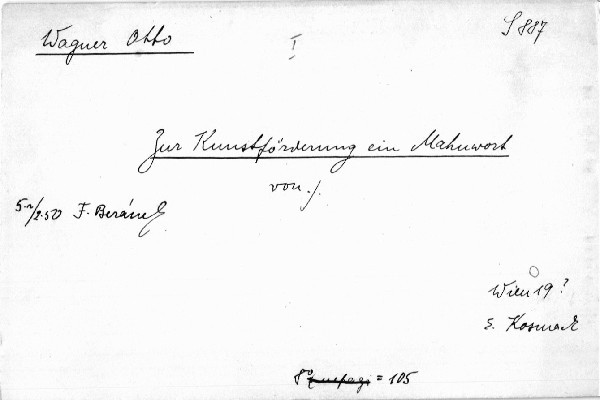 Wagner Otto
I
S 887
Zur Kunstförderung ein Mahnwort
von ./.
F. Beránek
Wien 19?
E. Kosmack
8° = 105